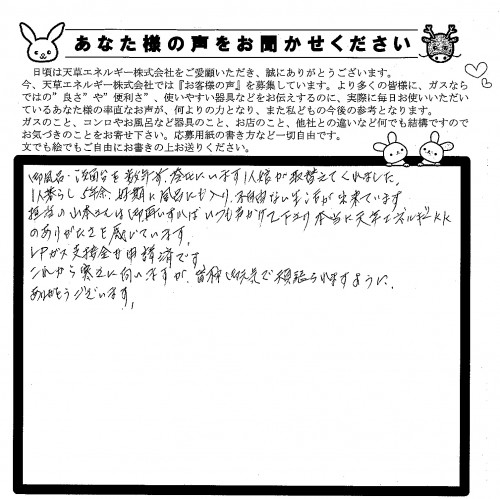 あなた様の声をお聞かせください
日頃は天草エネルギー株式会社をご愛顧いただき、誠にありがとうございます。
今、天草エネルギー株式会社では『お客様の声』を募集しています。より多くの皆様に、ガスなら
ではの"良さ"や"便利さ"、使いやすい器具などをお伝えするのに、実際に毎日お使いいただい
ているあなた様の率直なお声が、何よりの力となり、また私どもの今後の参考となります。
ガスのこと、コンロやお風呂など器具のこと、お店のこと、他社との違いなど何でも結構ですので
お気づきのことをお寄せ下さい。応募用紙の書き方など一切自由です。
文でも絵でもご自由にお書きの上お送りください。
御風呂・湯沸器を数年前、 1人娘が取替えてくれました。
1人暮らし 風呂にも入り、不自由ない生活が出来ています
担当の山本さんには いつも声がけして下さり本当に天草エネルギーKK
のありがたさを感じています。
LPガス支援金も申請済です
これから寒さに向いますが、皆神 元気で頑張られますように、
ありがとうございます。